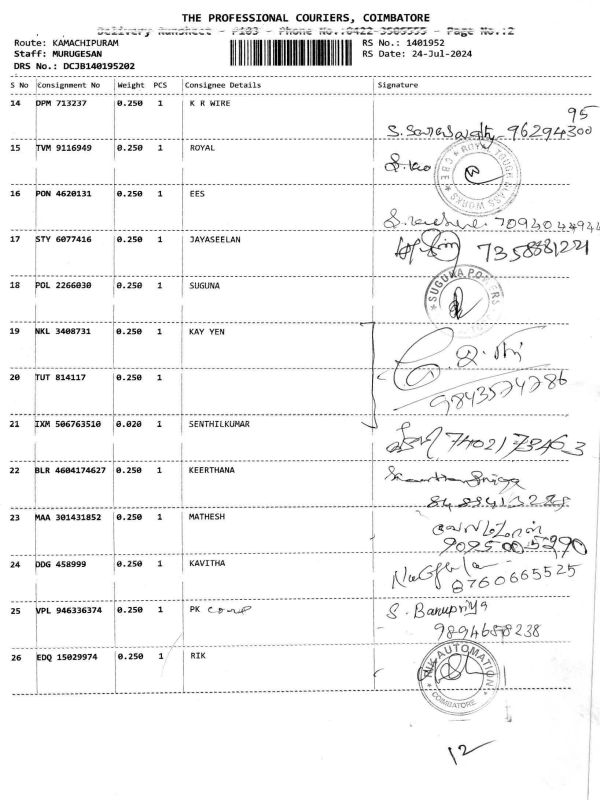 THE PROFESSIONAL COURIERS, COIMBATORE
Delivery Runsheet - P103 - Phone No.:0422-3505555 - Page No.:2
Route: KAMACHIPURAM RS No.: 1401952
Staff: MURUGESAN RS Date: 24-Jul-2024
DRS No.: DCJB140195202
S No Consignment No Weight PCS Consignee Details Signature
14 DPM 713237 0.250 1 K R WIRE
95
96294300
15 TVM 9116949 0.250 1 ROYAL
ROYAL TOUGH GLASS WORKS * C.B.E *
16 PON 4620131 0.250 1 EES
7094044944
17 STY 6077416 0.250 1 JAYASEELAN
18 POL 2266030 0.250 1 SUGUNA
SUGUNA POWERS
19 NKL 3408731 0.250 1 KAY YEN
20 TUT 814117 0.250 1
9843574786
21 IXM 506763510 0.020 1 SENTHILKUMAR
22 BLR 4604174627 0.250 1 KEERTHANA
23 MAA 301431852 0.250 1 MATHESH
24 DDG 458999 0.250 1 KAVITHA
8760665525
25 VPL 946336374 0.250 1 PK S. Banupriya
26 EDQ 15029974 0.250 1 RIK
RIK AUTOMATION
COIMBATORE
12